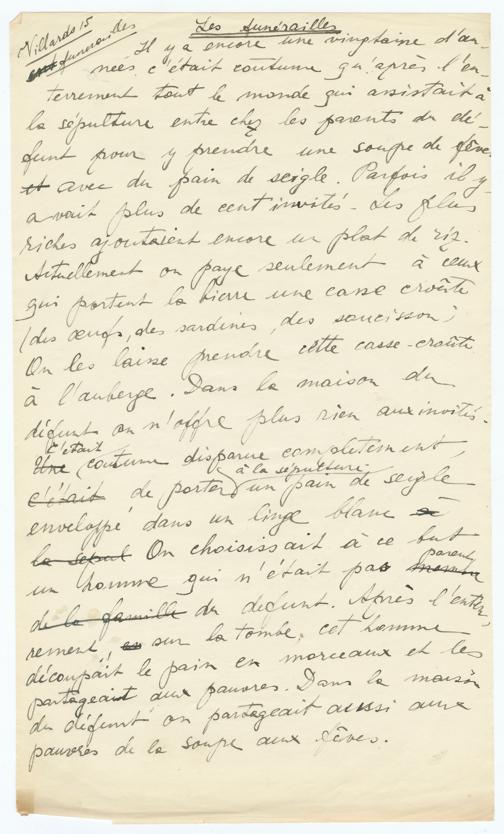 Villardo 15
funérailles
Les funérailles
Il y a encore une vingtaine d'an-
nées c'était coutume qu'après l'en-
terrement tout le monde qui assistait à
la sépulture entre chez les parents du dé-
funt pour y prendre une soupe de fèves
et avec du pain de seigle. Parfois il y
avait plus de cent invités. Les plus
riches ajoutaient encore un plat de riz.
Actuellement on paye seulement à ceux
qui portent la bierre une casse croûte
(des œufs, des sardines, des saucisson)
On les laisse prendre cette casse-croûte
à l'auberge. Dans la maison du
défunt on n'offre plus rien aux invités.
C'était
Une coutume disparue completement,
à la sépulture
c'était de porter un pain de seigle
enveloppé dans un linge blanc à
la sepul On choisissait à ce but
parent
un homme qui n'était pas membre
de la famille du defunt. Après l'enter-
rement, en sur la tombe, cet homme
découpait le pain en morceaux et les
partageait aux pauvres. Dans la maison
du défunt on partageait aussi aux
pauvres de la soupe aux fèves.